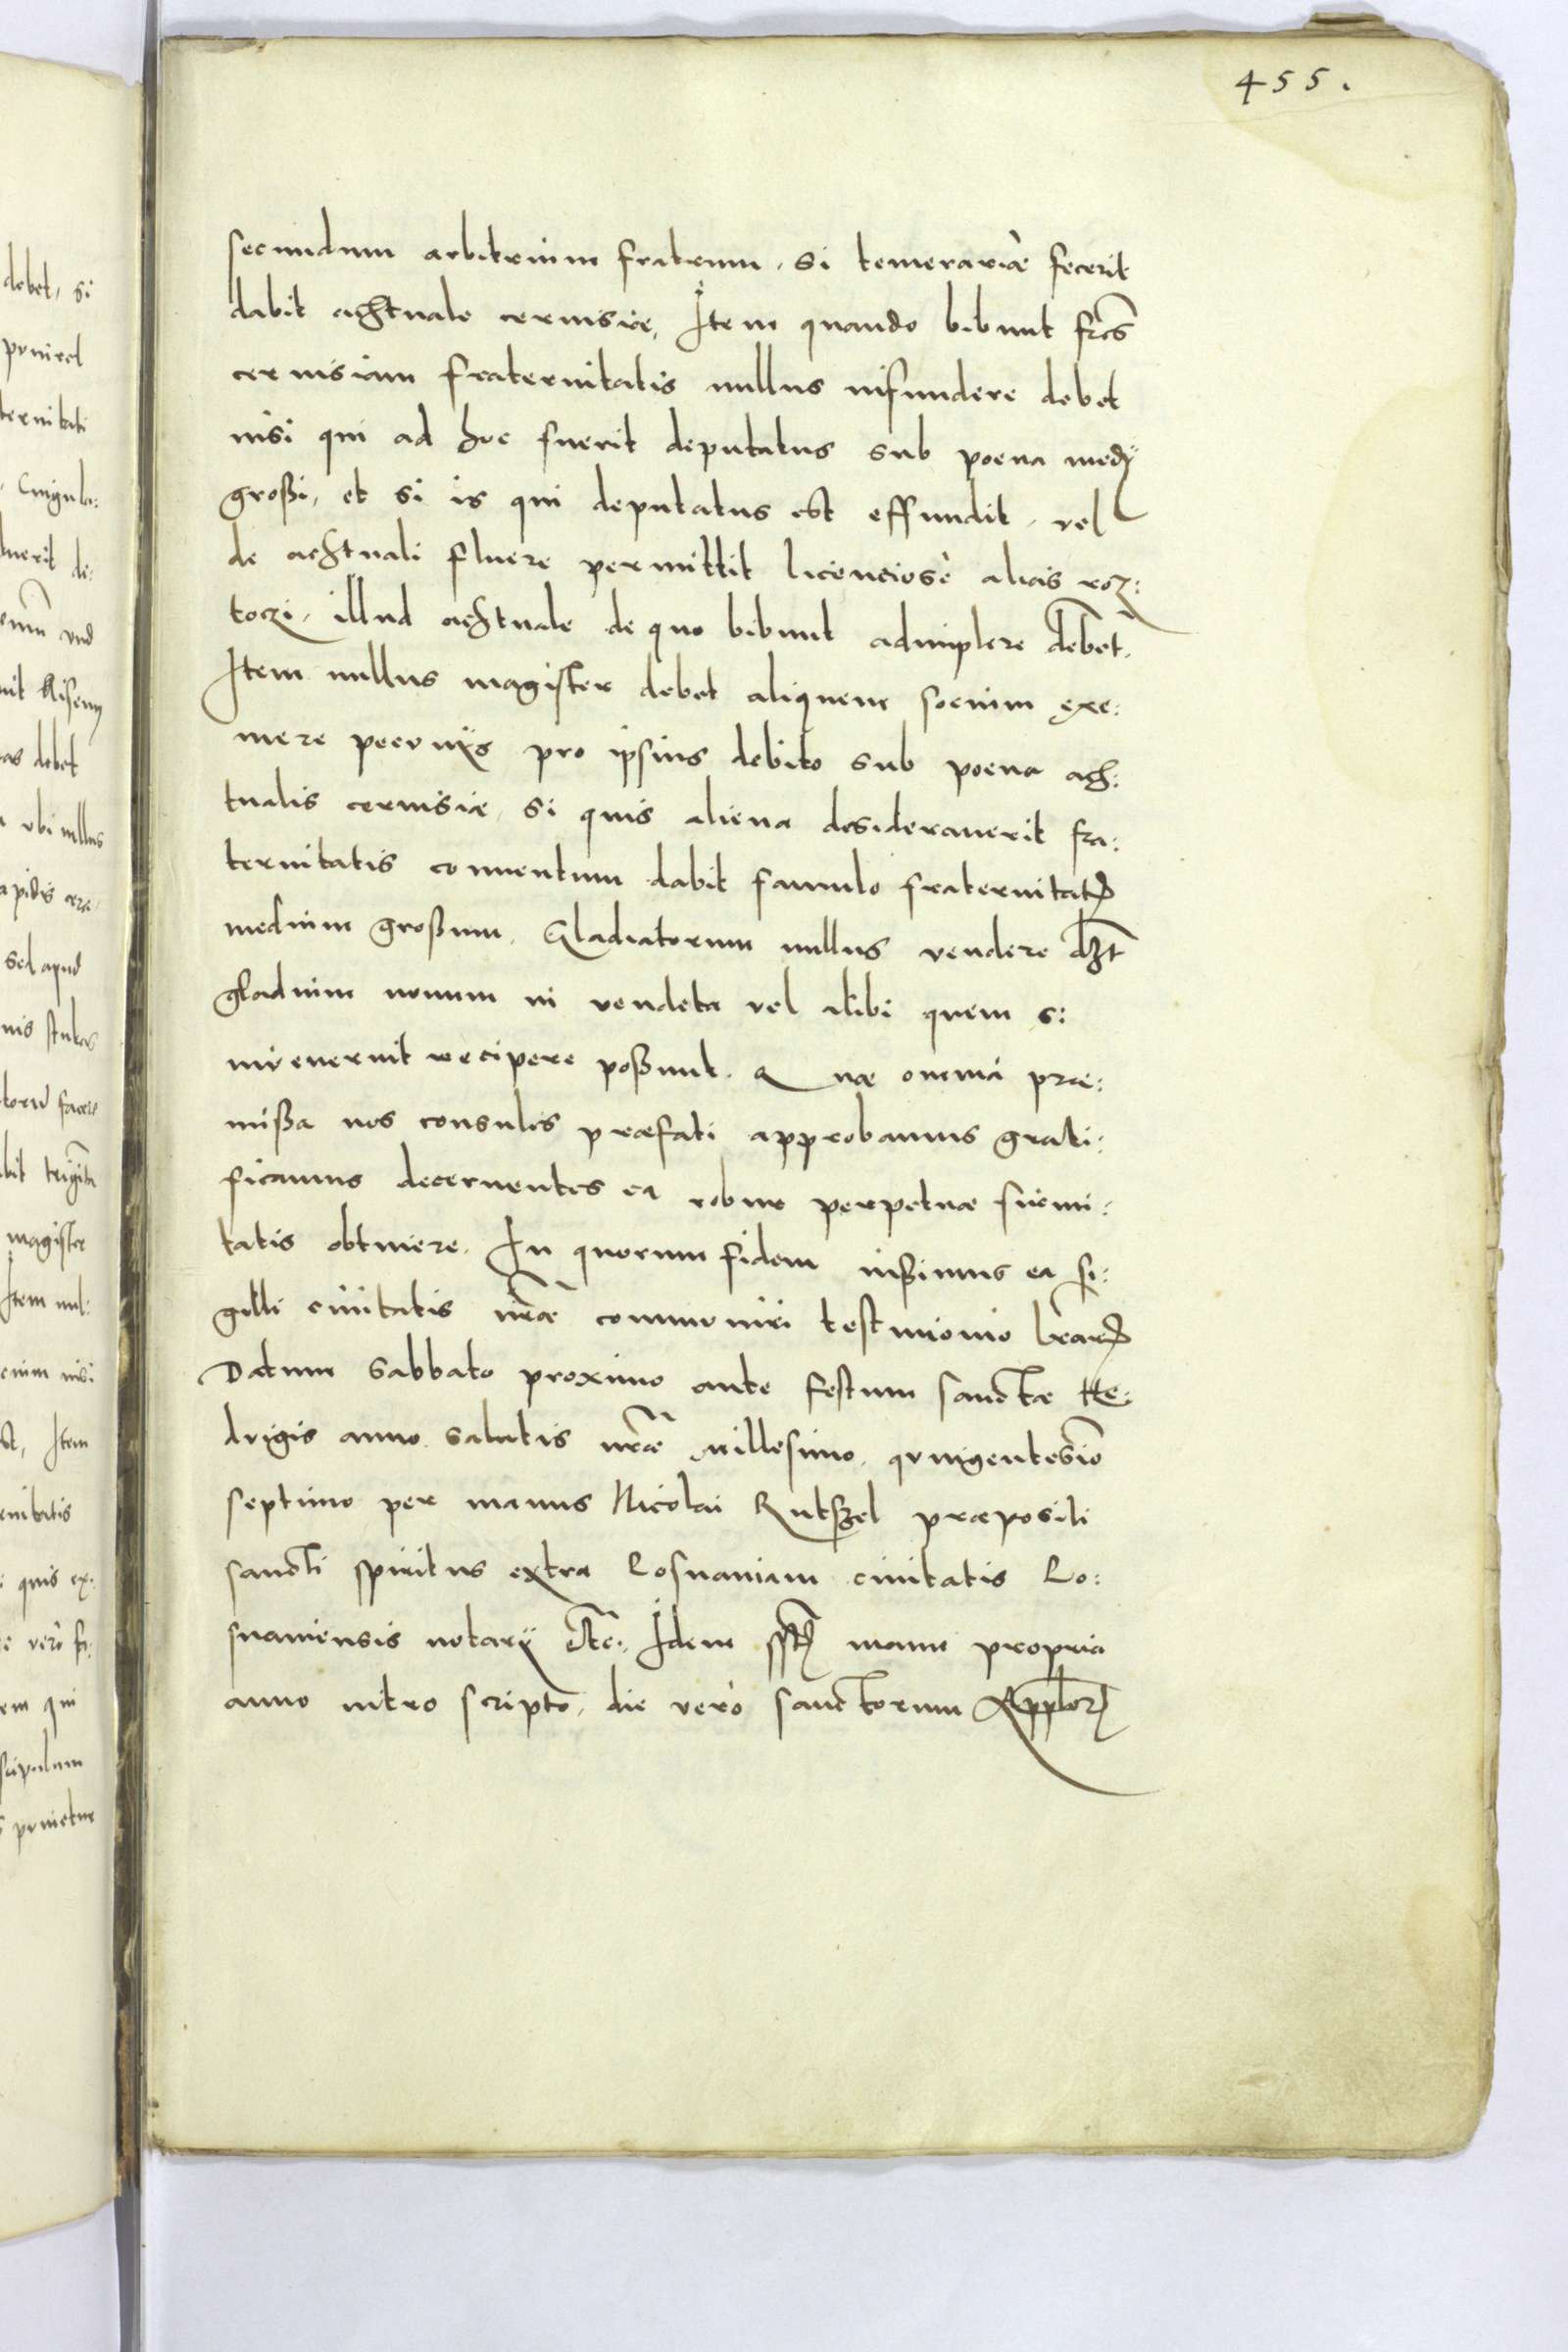 455.
secundum arbitrium fratrum, si temerariae fecerit
dabit achtuale cervisiae, Item quando bibunt frēs
cervisiam fraternitatis nullus infundere debet
nisi qui ad hoc fuerit deputatus sub poena medÿ
großi, et si is qui deputatus est effundit, vel
de achtuali fluere permittit licenciosè alias roz:
toczi, illud achtuale de quo bibunt adimplere debet.
Item nullus magister debet aliquem socium exi:
mere pecuniis pro ipsius debito sub poena ach:
tualis cervisiae, si quis aliena desideraverit fra:
ternitatis conventum dabit famulo fraternitatis
medium großum. Gladiatorum nullus vendere dēt
gladium novum in vendeta vel alibi quem si
invenerint recipere poßunt. Quae omnia prae:
mißa nos consules praefati approbamus grati:
ficamus decernentes ea robur perpetuae firmi:
tatis obtinere. In quorum fidem iußimus ea si:
gilli civitatis nrāe communiri testimonio
Datum Sabbato proximo ante festum sanctae He:
dvigis anno salutis nrāe millesimo, quingentesimo
septimo per manus Nicolai Rutszel praepositi
sancti spiritus extra Posnaniam civitatis Po:
snaniensis notarÿ etc. Idem manu propria
anno intro scripto, die verò sanctorum Applor̄
debet, si
puniret
ternitati
Cingula:
nullus
sed apud
magister
Item nul:
Item
quis ex:
verò
qui
punietur